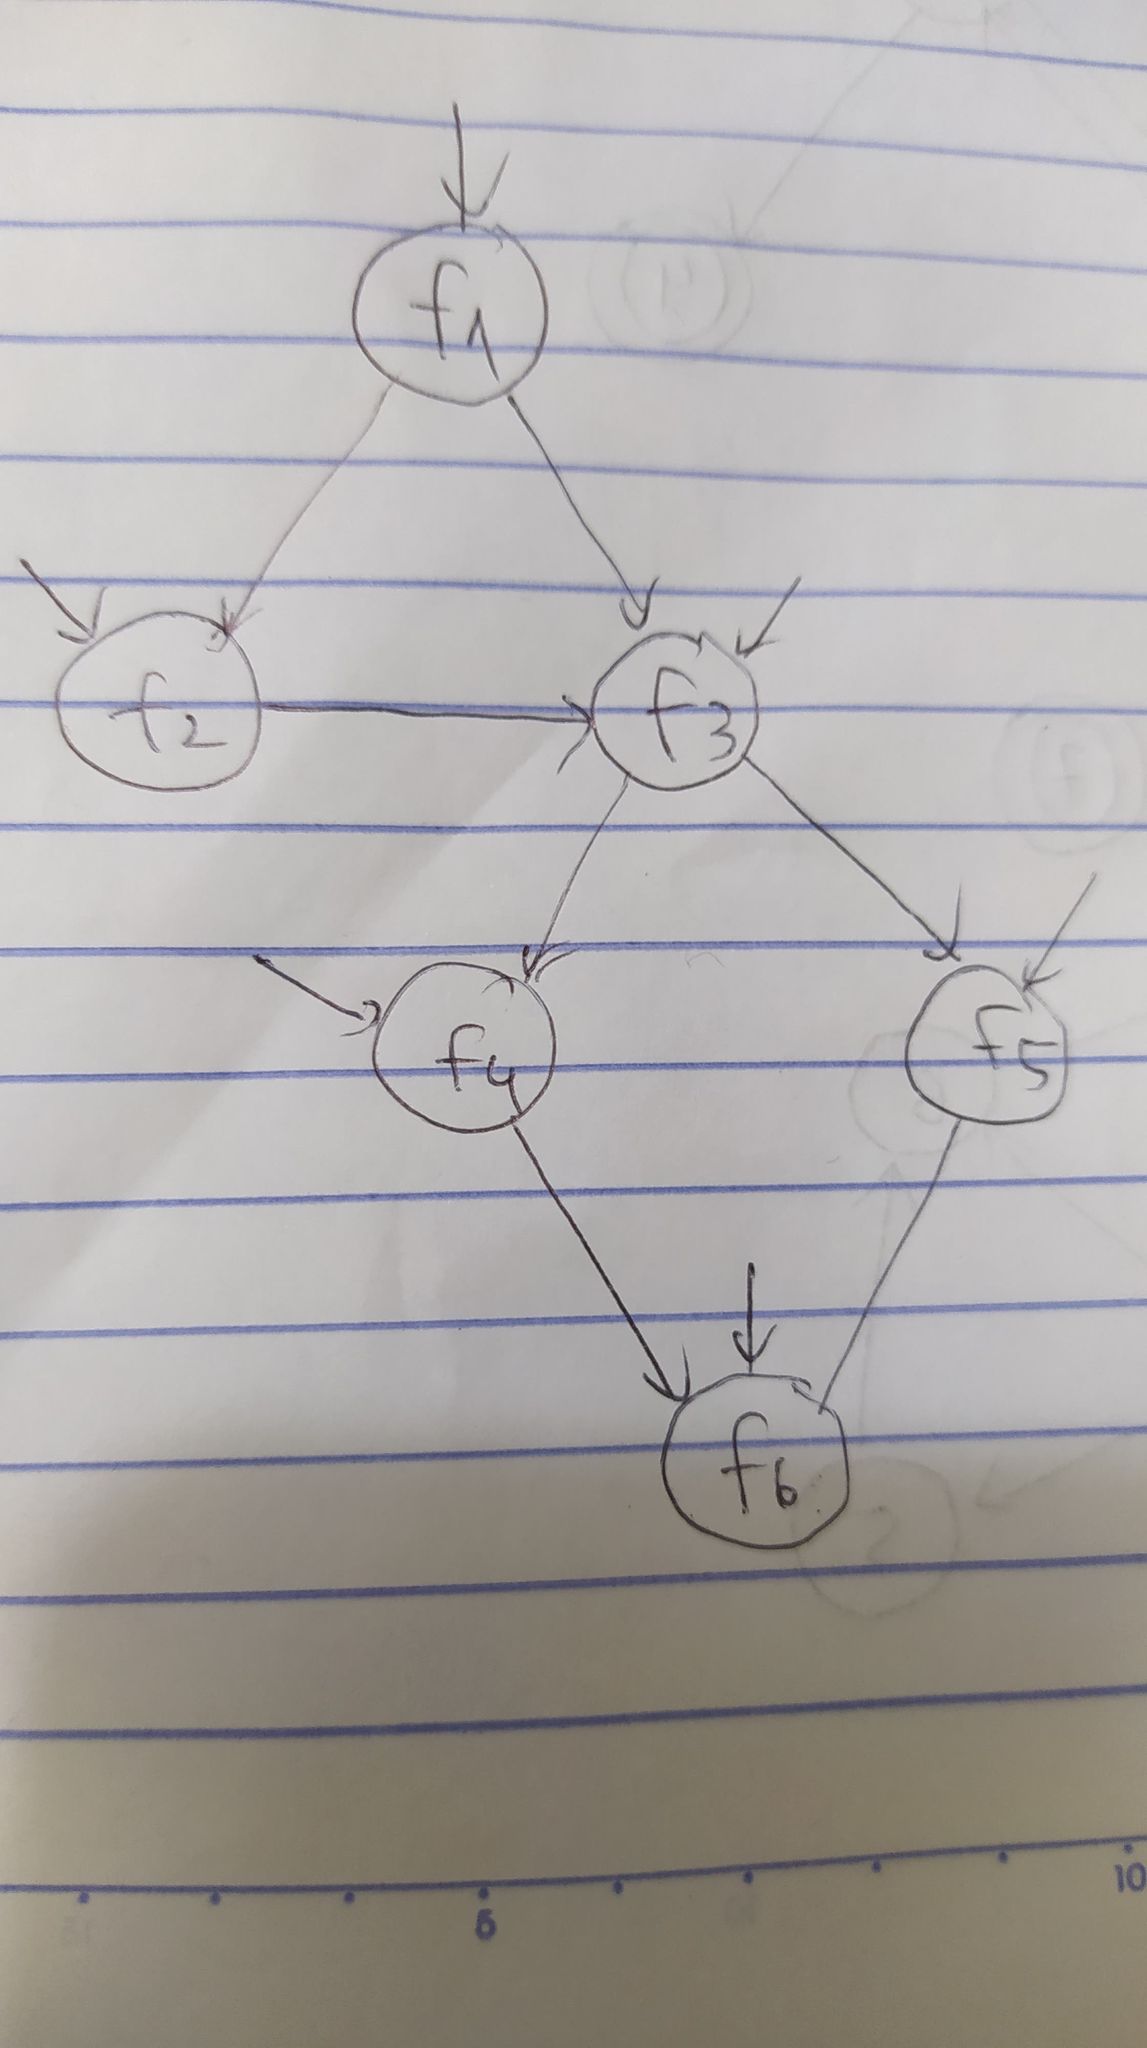 f1
f2 f3
f4 f5
f6
5 10